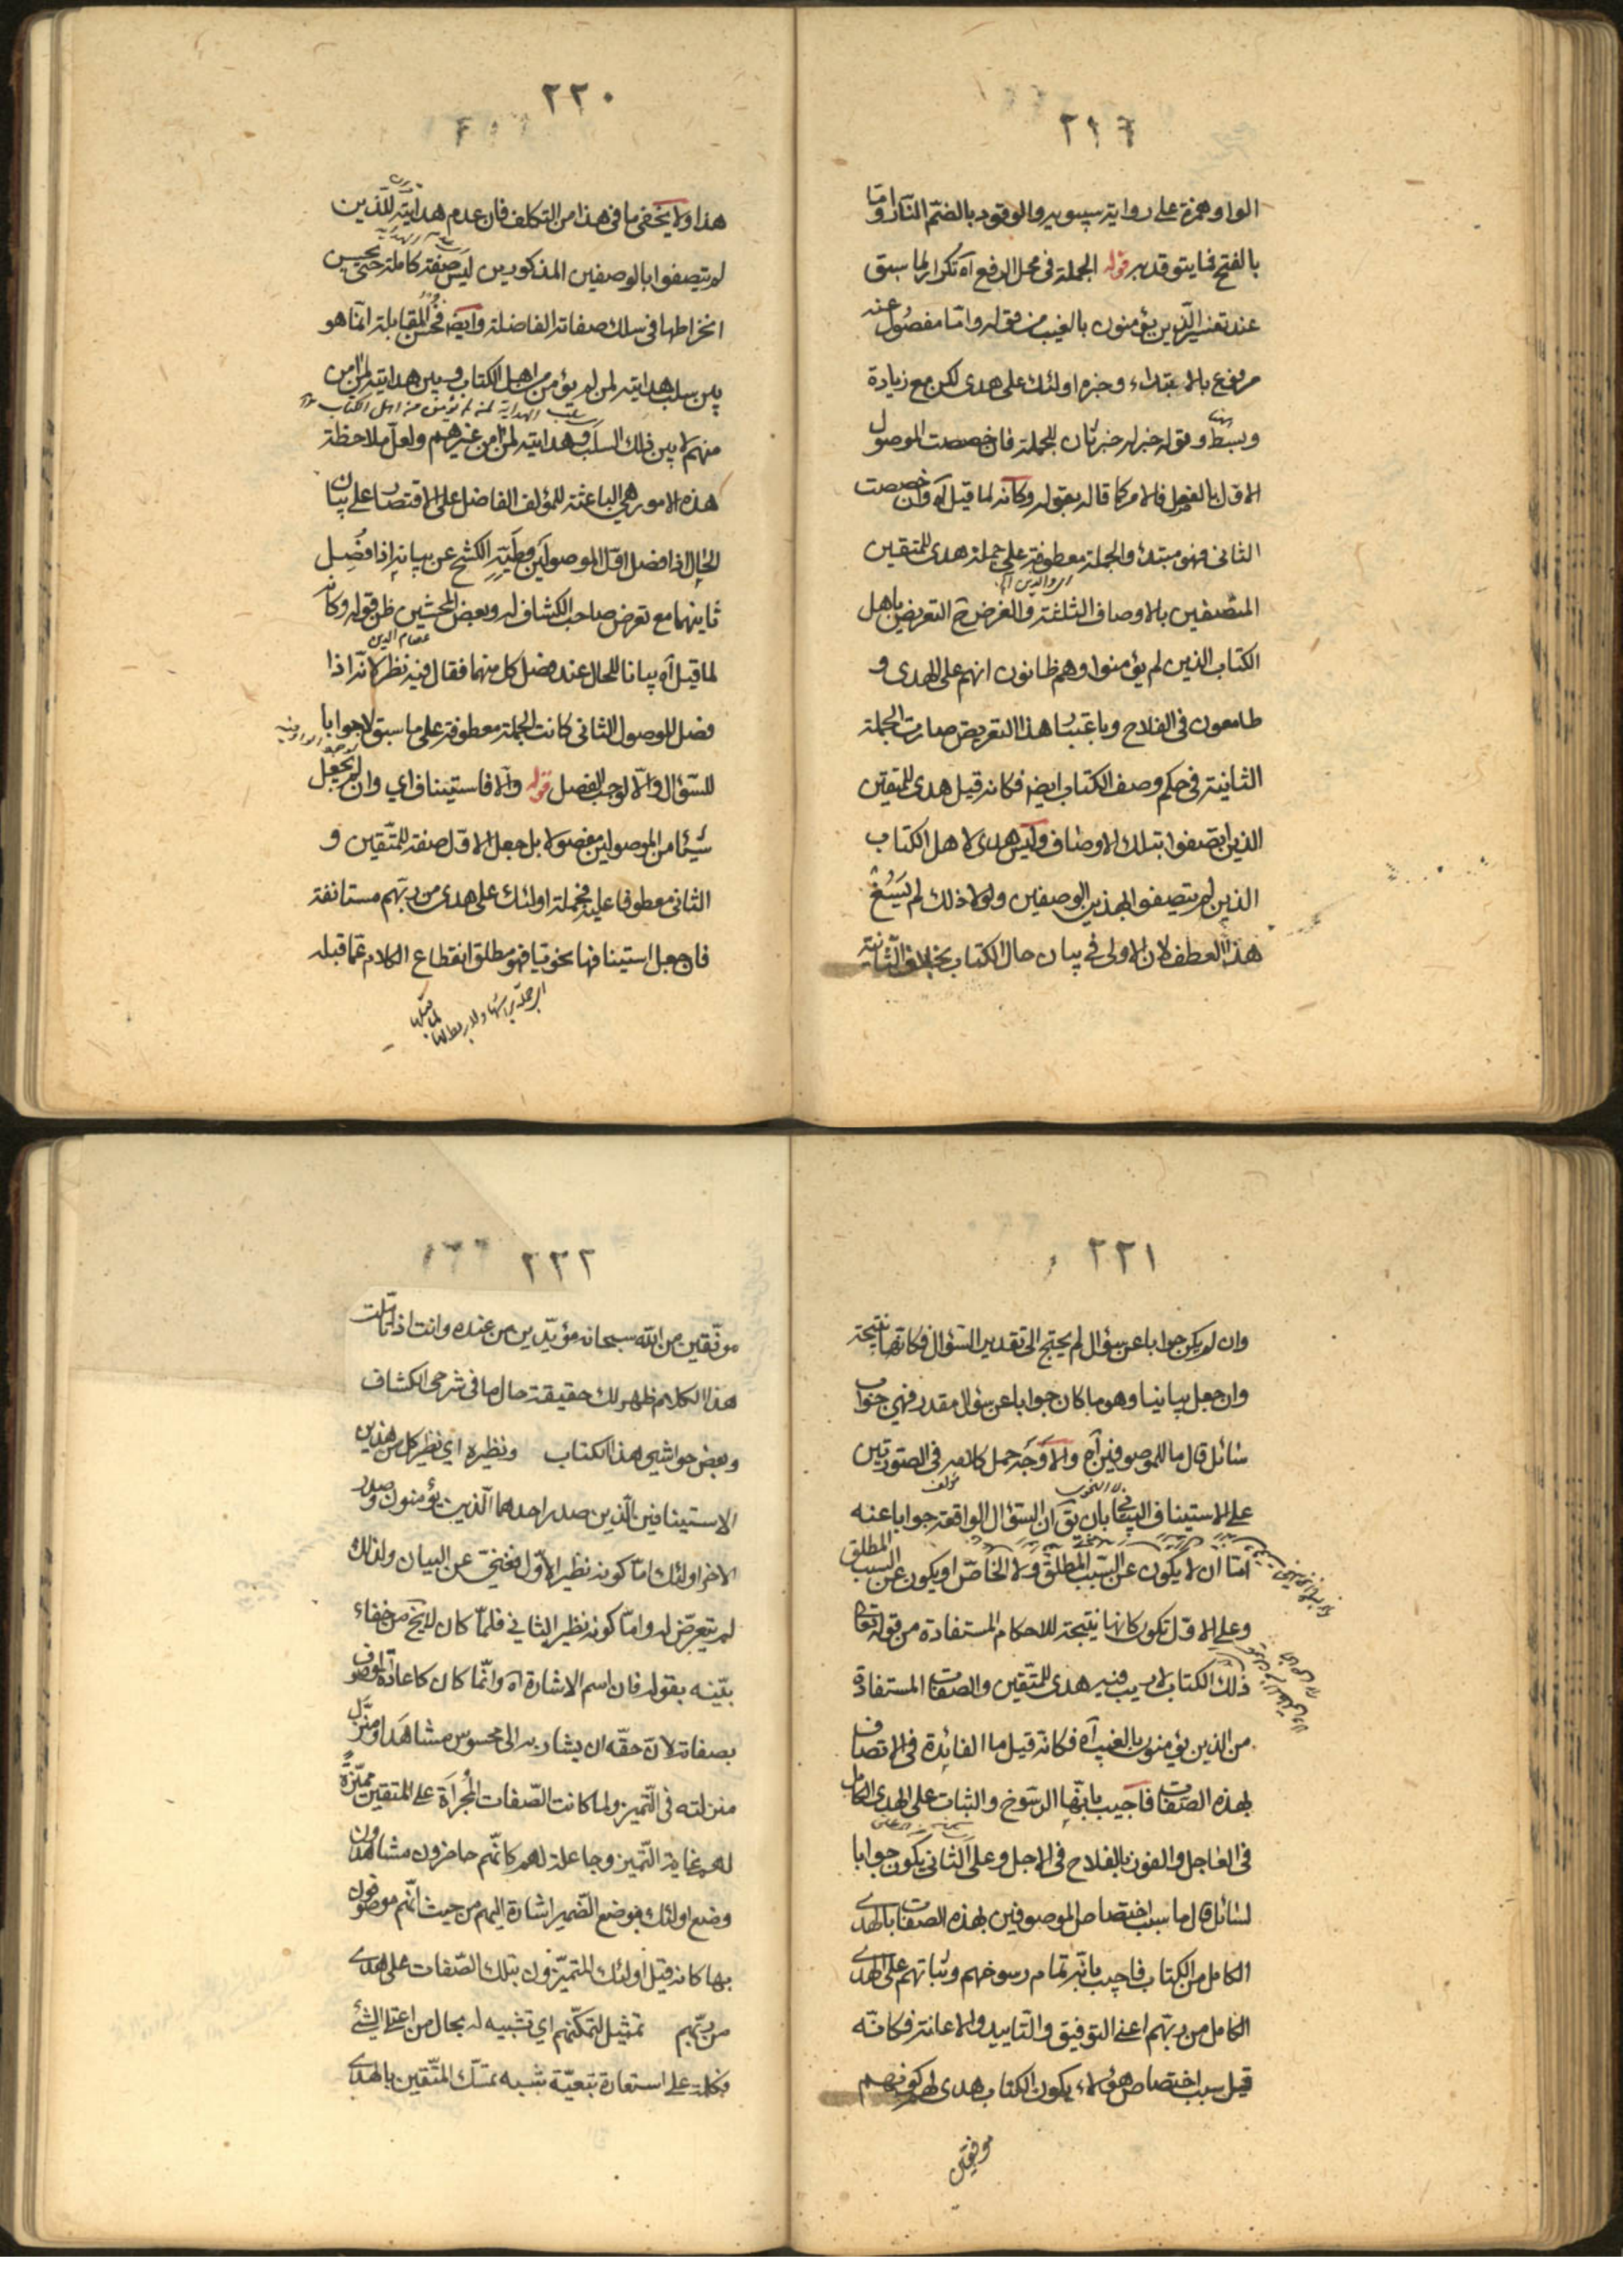 ٢١٩
الواو همزة على رواية سيبويه والوقود بالضم النار واما
بالفتح فما يتوقد به قوله الجملة في محل الرفع آه تكرار لما سبق
عند تفسير الذين يؤمنون بالغيب من قوله واما مفصول عنه
مرفوع بالابتداء وخبره اولئك على هدى لكن مع زيادة
وبسط وقوله خبر له خبر ثان للجملة فان خصصت الموصول
الاول بالفصل فالامر كما قاله بقوله وكانه لما قيل آه وان خصصت
الثاني فهو مبتدء والجملة معطوفة على جملة هدى للمتقين
المتصفين بالاوصاف الثلثة والغرض ح التعريض باهل
الكتاب الذين لم يؤمنوا وهم ظانون انهم على الهدى و
طامعون في الفلاح وباعتبار هذا التعريض صارت الجملة
الثانية في حكم وصف الكتاب ايضا فكانه قيل هدى للمتقين
الذين اتصفوا بتلك الاوصاف وليس هدى لاهل الكتاب
الذين لم يتصفوا بهذين الوصفين ولولا ذلك لم يسغ
هذا العطف لان الاولى في بيان حال الكتاب بخلاف الثانية
٢٢٠
هذا ولا يخفى ما في هذا من التكلف فان عدم هدايته للذين
لم يتصفوا بالوصفين المذكورين ليس صفة كاملة حتى يحسن
انخراطها في سلك صفاته الفاضلة وايضا فحسن المقابلة انما هو
بين سلب هدايته لمن لم يؤمن من اهل الكتاب وبين هدايته لمن امن
سلب الهداية لمن لم يؤمن من اهل الكتاب
منهم لا بين ذلك السلب وهدايته لمن امن من غيرهم ولعل ملاحظة
هذه الامور هي الباعثة للمؤلف الفاضل على الاقتصار على بيان
الحال اذا فصل اول الموصولين وطيه الكشح عن بيانه اذا فصل
ثانيهما مع تعرض صاحب الكشاف له وبعض المحشين ظن قوله وكانه
عصام الدين
لما قيل آه بيانا للحال عند فصل كل منهما فقال فيه نظر كانه اذا
فصل الموصول الثاني كانت الجملة معطوفة على ما سبق لا جوابا
للسؤال والا لوجب الفصل قوله والا فاستيناف اي وان لم يجعل
شيئا من الموصولين مفصولا بل جعل الاول صفة للمتقين و
الثاني معطوفا عليه فجملة اولئك على هدى من ربهم مستانفة
فان جعل استينافها نحويا فهو مطلق انقطاع الكلام عما قبله
٢٢١
وان لم يكن جوابا عن سؤال لم يحتج الى تقدير السؤال فكانها نتيجة
وان جعل بيانيا وهو ما كان جوابا عن سؤال مقدر فهي جواب
سائل قال ما للموصوفين آه والاوجه حمل كلامه في الصورتين
على الاستيناف البياني بان يق ان السؤال الواقعة جوابا عنه
اما ان لا يكون عن السبب المطلق ولا الخاص او يكون عن السبب المطلق
وعلى الاول تكون كانها نتيجة للاحكام المستفادة من قوله تعالى
ذلك الكتاب لا ريب فيه هدى للمتقين والصفات المستفادة
من الذين يؤمنون بالغيب آه فكانه قيل ما الفائدة في الاتصاف
بهذه الصفات فاجيب بانها الرسوخ والثبات على الهدى الكامل
في العاجل والفوز بالفلاح في الاجل وعلى الثاني يكون جوابا
لسائل قال ما سبب اختصاص الموصوفين بهذه الصفات بالهدى
الكامل من الكتاب فاجيب بانه تمام رسوخهم وثباتهم على الهدى
الكامل من ربهم اعني التوفيق والتاييد والاعانة فكانه
قيل سبب اختصاص هؤلاء يكون الكتاب هدى لهم كونهم
موفقين
٢٢٢
موفقين من الله سبحانه مؤيدين من عنده وانت اذا تاملت
هذا الكلام ظهر لك حقيقة حال ما في شرحي الكشاف
وبعض حواشي هذا الكتاب ونظيره اي نظير كل من هذين
الاستينافين الذين صدر احدهما الذين يؤمنون وصدر
الاخر اولئك اما كونه نظير الاول فغني عن البيان ولذلك
لم يتعرض له واما كونه نظير الثاني فلما كان لا يخ من خفاء
بينه بقوله فان اسم الاشارة آه وانما كان كاعادة الموصوف
بصفاته لان حقه ان يشار به الى محسوس مشاهد او منزل
منزلته في التميز ولما كانت الصفات المجراة على المتقين مميزة
لهم غاية التميز وجاعلة لهم كانهم حاضرون مشاهدون
وضع اولئك موضع الضمير اشارة اليهم من حيث انهم موصوفون
بها كانه قيل اولئك المتميزون بتلك الصفات على هدى
من ربهم تمثيل لتمكنهم اي تشبيه له بحال من اعتلى الشئ
فكلمة على استعارة تبعية شبه تمسك المتقين بالهدى